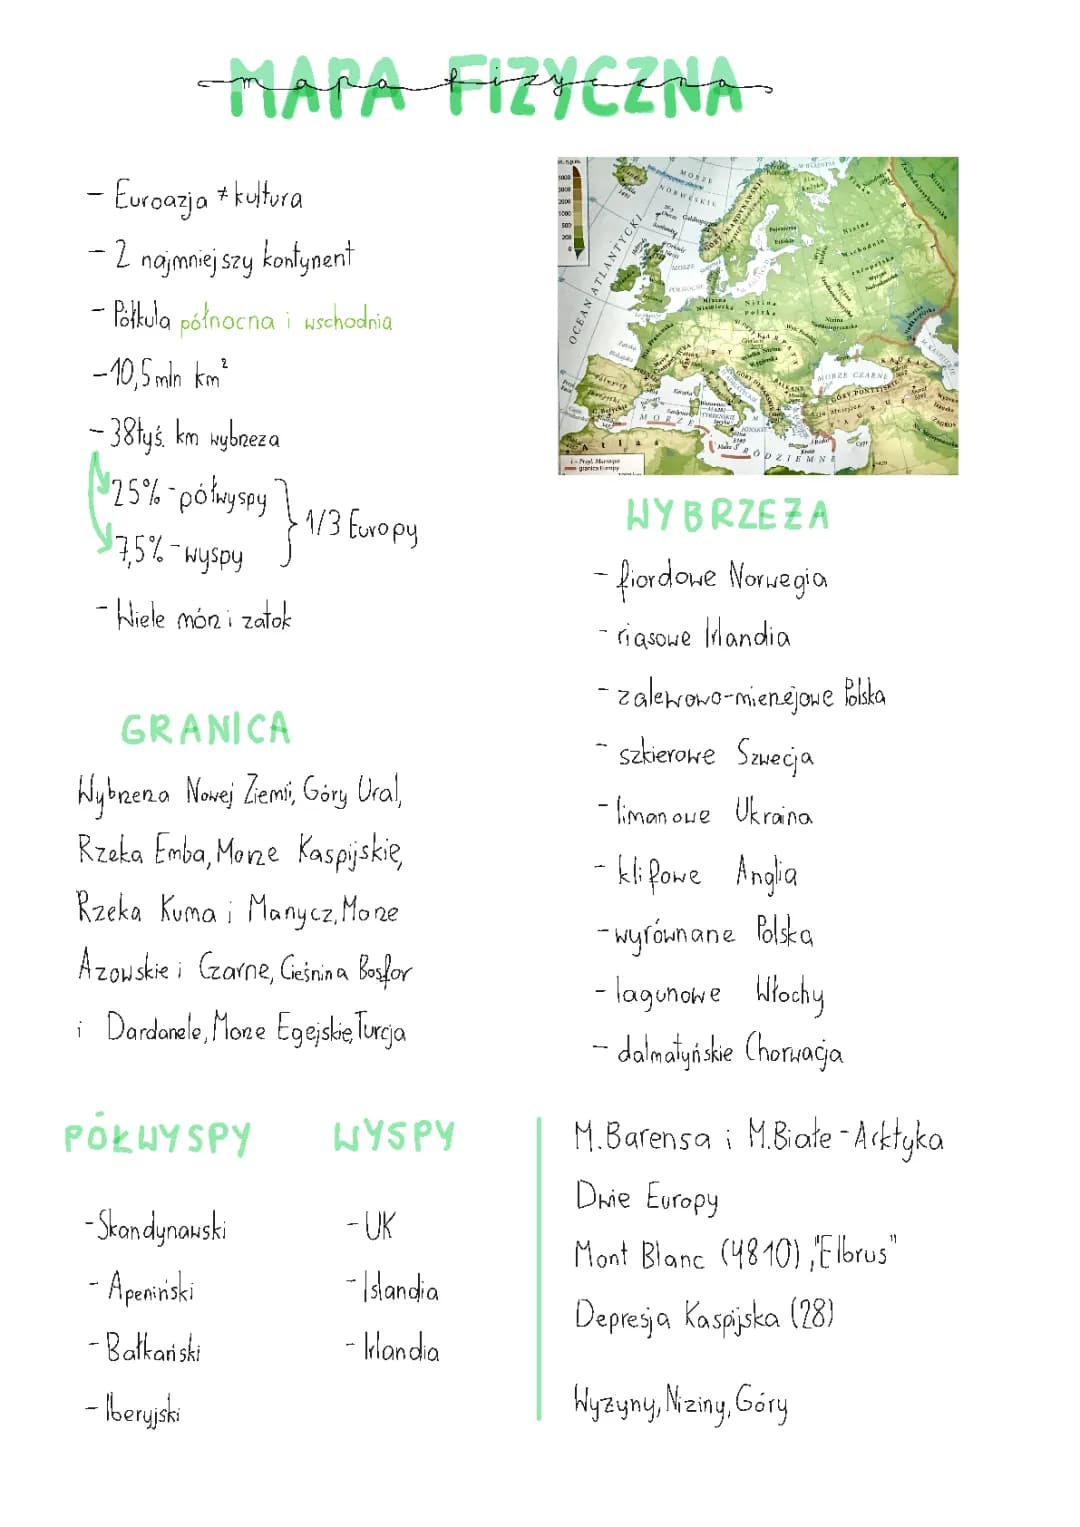 MAPA FIZYCZNA
mapa fizyczna
- Euroazja ≠ kultura
- 2 najmniejszy kontynent
- Półkula północna i wschodnia
- 10,5 mln km²
- 38tyś. km wybrzeża
25% - półwyspy
7,5% - wyspy
} 1/3 Europy
- Wiele mórz i zatok
MORZE
NORWESKIE
OCEAN ATLANTYCKI
GÓRY SKANDYNAWSKIE
MORZE
PÓŁNOCNE
Nizina
Niemiecka
Nizina
Polska
MORZE CZARNE
GÓRY PONTYJSKIE
MORZE
ŚRÓDZIEMNE
Atlas
granica Europy
WYBRZEŻA
- fiordowe Norwegia
- riasowe Irlandia
- zalewowo-mierzejowe Polska
- szkierowe Szwecja
- limanowe Ukraina
- klifowe Anglia
- wyrównane Polska
- lagunowe Włochy
- dalmatyńskie Chorwacja
GRANICA
Wybrzeża Nowej Ziemii, Góry Ural,
Rzeka Emba, Morze Kaspijskie,
Rzeka Kuma i Manycz, Morze
Azowskie i Czarne, Cieśnina Bosfor
i Dardanele, Morze Egejskie, Turcja
PÓŁWYSPY
- Skandynawski
- Apeniński
- Bałkański
- Iberyjski
WYSPY
- UK
- Islandia
- Irlandia
M. Barensa i M. Białe - Arktyka
Dwie Europy
Mont Blanc (4810), "Elbrus"
Depresja Kaspijska (28)
Wyżyny, Niziny, Góry